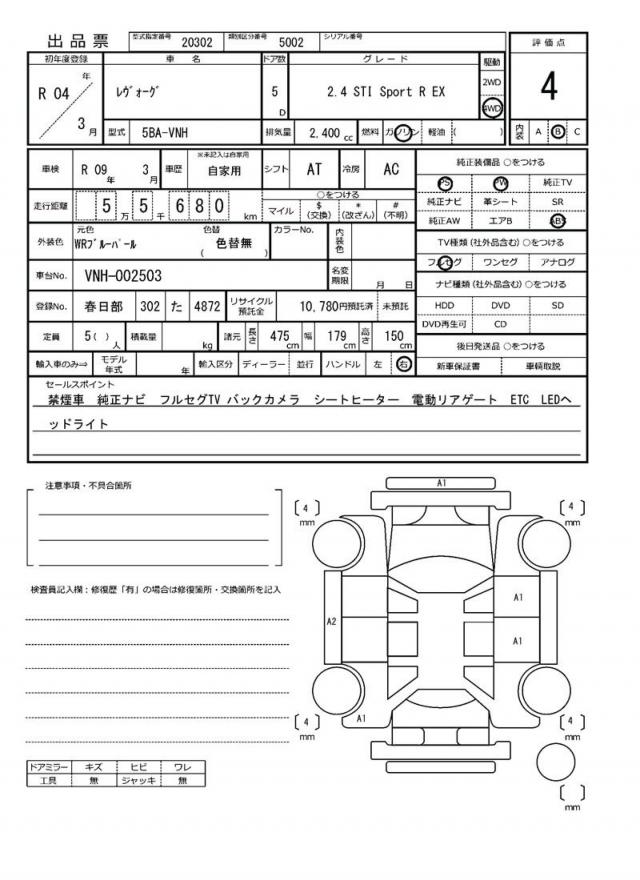 出品票 型式指定番号 20302 類別区分番号 5002 シリアル番号
初年度登録 車 名 ドア数 グレード 駆動 評価点
R 04 年 3 月 ﾚｳﾞｫｰｸﾞ 5 D 2.4 STI Sport R EX 2WD 4WD 4
型式 5BA-VNH 排気量 2,400 cc 燃料 ガソリン 軽油 ( ) 内装 A B C
車検 R 09 年 3 月 車歴 ※未記入は自家用 自家用 シフト AT 冷房 AC
走行距離 5 万 5 千 6 8 0 km ○をつける マイル $ (交換) * (改ざん) # (不明)
外装色 元色 WRﾌﾞﾙｰﾊﾟｰﾙ 色替 ( 色替無 ) カラーNo. 内装色
車台No. VNH-002503 名変期限 月 日
登録No. 春日部 302 た 4872 リサイクル預託金 10,780円預託済 未預託
定員 5( ) 人 積載量 kg 諸元 長さ 475 cm 幅 179 cm 高さ 150 cm
輸入車のみ⇒ モデル年式 年 輸入区分 ディーラー 並行 ハンドル 左 右
純正装備品 ○をつける
PS PW 純正TV
純正ナビ 革シート SR
純正AW エアB ABS
TV種類 (社外品含む) ○をつける
フルセグ ワンセグ アナログ
ナビ種類 (社外品含む) ○をつける
HDD DVD SD
DVD再生可 CD
後日発送品 ○をつける
新車保証書 車輌取説
セールスポイント
禁煙車 純正ナビ フルセグTV バックカメラ シートヒーター 電動リアゲート ETC LEDヘ
ッドライト
注意事項・不具合箇所
検査員記入欄：修復歴「有」の場合は修復箇所・交換箇所を記入
ドアミラー キズ ヒビ ワレ
工具 無 ジャッキ 無
A1
4 mm
4 mm
A1
A2 A1
A1
4 mm
4 mm
mm